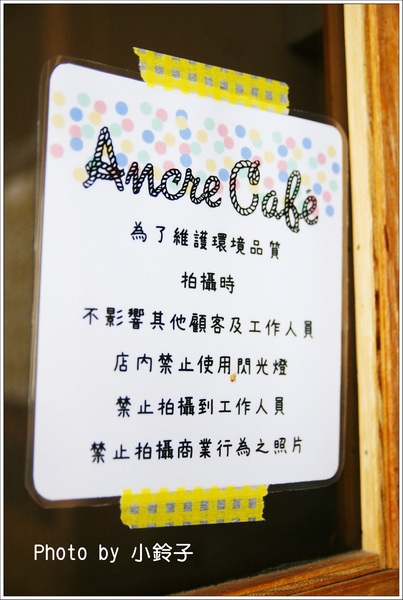 Ancre Café
為了維護環境品質
拍攝時
不影響其他顧客及工作人員
店內禁止使用閃光燈
禁止拍攝到工作人員
禁止拍攝商業行為之照片
Photo by 小鈴子